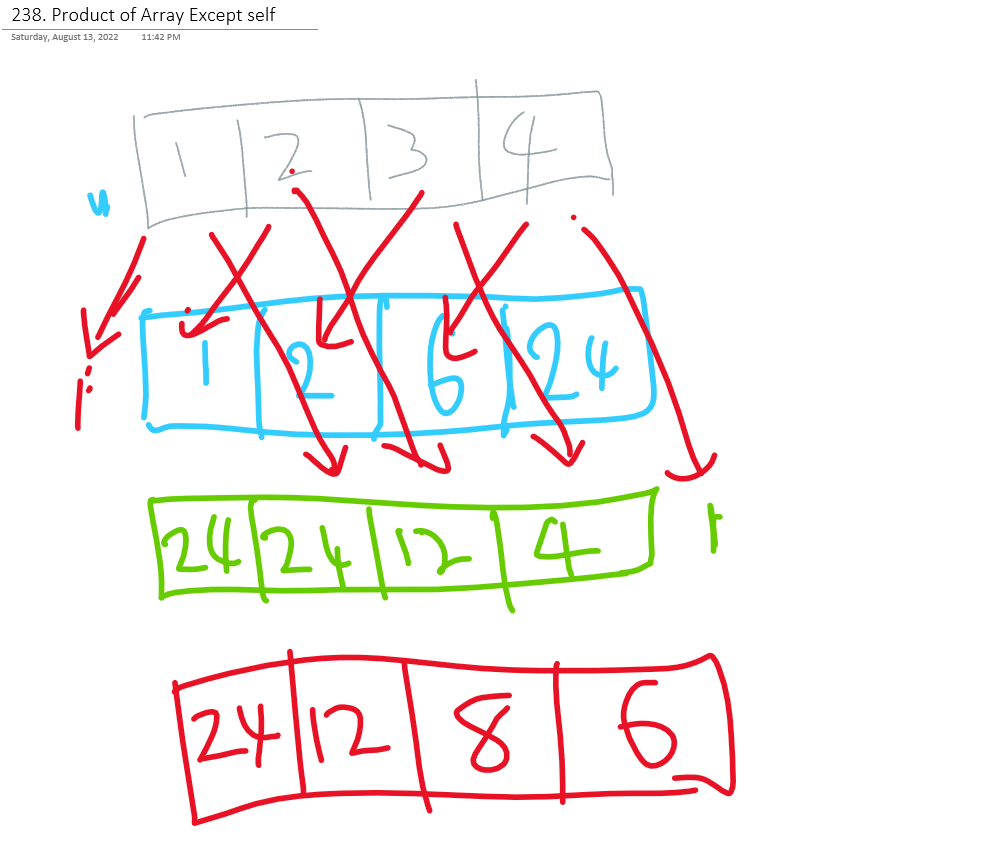 238. Product of Array Except self
Saturday, August 13, 2022 11:42 PM
1 2 3 4
1 1 2 6 24
24 24 12 4 1
24 12 8 6